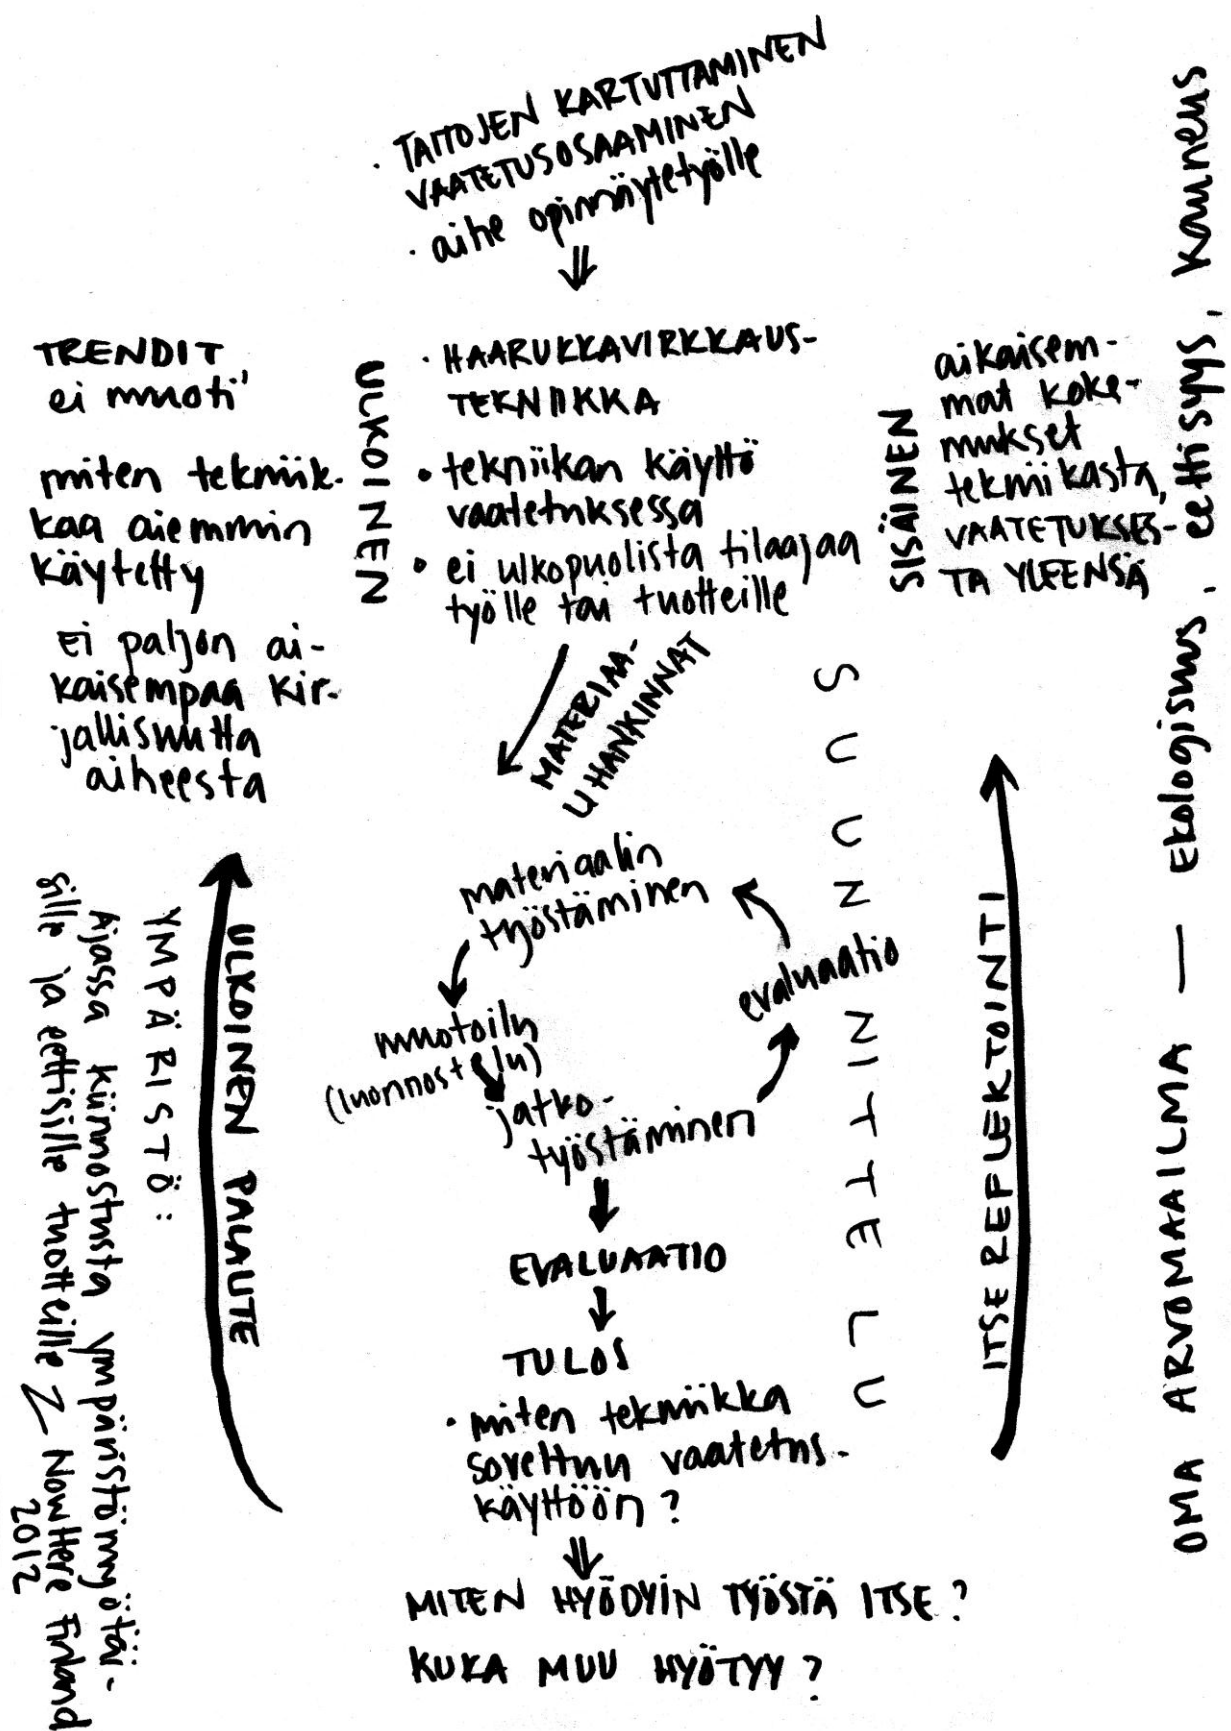 · TAITOJEN KARTUTTAMINEN
VAATETUSOSAAMINEN
· aihe opinnäytetyölle
TRENDIT
ei muoti'
miten tekniik-
kaa aiemmin
käytetty
Ei paljon ai-
kaisempaa kir-
jallisuutta
aiheesta
ULKOINEN
· HAARUKKAVIRKKAUS-
TEKNIIKKA
• tekniikan käyttö
vaatetuksessa
• ei ulkopuolista tilaajaa
työlle tai tuotteille
SISÄINEN
aikaisem-
mat koke-
mukset
tekniikasta,
VAATETUKSES-
TA YLEENSÄ
MATERIAA-
LIHANKINNAT
SUUNNITTELU
materiaalin
työstäminen
muotoilu
(luonnostelu)
jatko-
työstäminen
evaluaatio
EVALUAATIO
TULOS
· miten tekniikka
soveltuu vaatetus-
käyttöön?
MITEN HYÖDYIN TYÖSTÄ ITSE?
KUKA MUU HYÖTYY?
ULKOINEN PALAUTE
YMPÄRISTÖ:
Ajassa kiinnostusta ympäristömyötäi-
sille ja eettisille tuotteille Nowhere Finland
2012
ITSEREFLEKTOINTI
OMA ARVOMAAILMA — Ekologisuus, eettisyys, kauneus